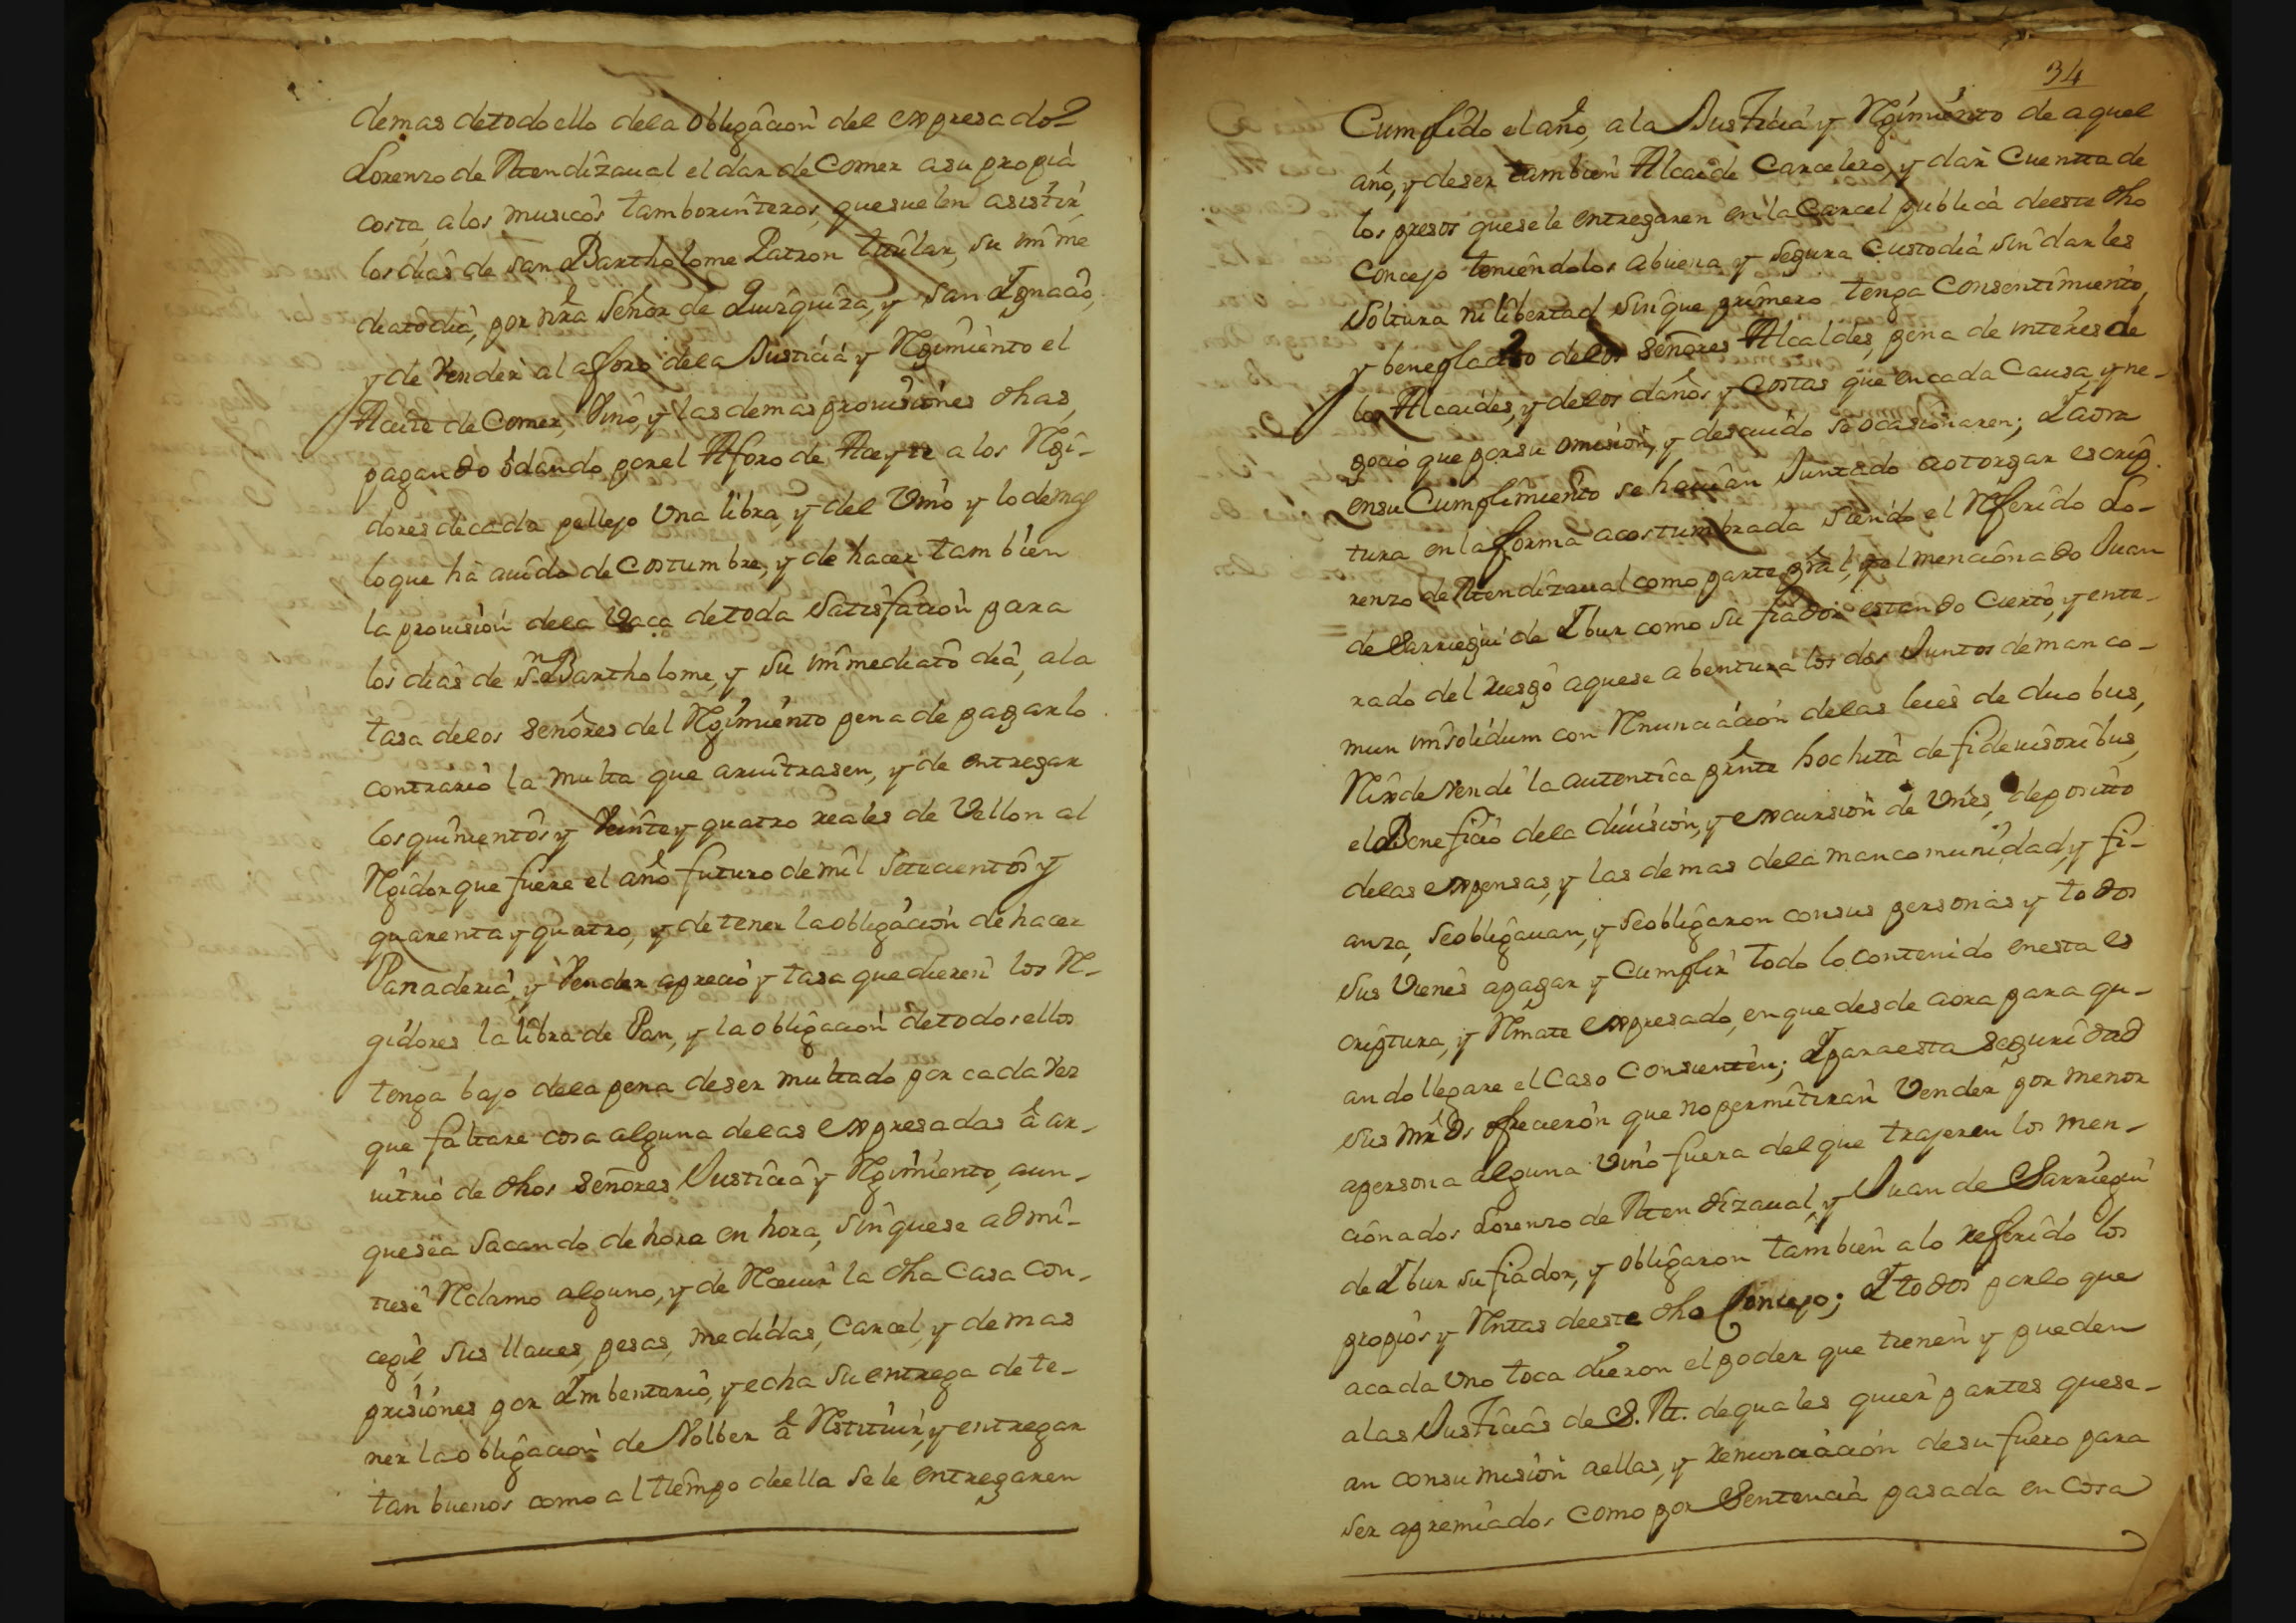 demas detodo ello dela obligación del expresado
Lorenzo de Atendizaual el dar de Comer asu propia
costa alos musicos tamborinteros, quesuelen asistir,
los dias de san Bartholome Patron titular, su imme
diato dia, por nra Señor de Quizquiza, y San Ignacio,
y de Vender al aforo dela Justicia y Rgimiento el
Aceite de Comer, Vino, y las demas prouisiones dhas,
pagando ó dando por el Aforo de Aceyte a los Rgi-
dores de cada pellejo Una libra, y del Vino y lo demas
lo que há auido de Costumbre, y de hacer tambien
la prouision dela Vaca de toda Satisfacion para
los dias de Sn Bartholome, y su immediato dia, ala
tasa delos señores del Rgimiento pena de pagar lo
contrario la multa que aruitrasen, y de entregar
los quinientos y Veinte y quatro reales de Vellon al
Rgidor que fuere el año futuro de mil Setecientos y
quarenta y quatro, y de tener la obligación de hacer
Panaderia, y Vender aprecio y tasa que dieren los R-
gidores la libra de Pan, y la obligacion detodos ellos
tenga bajo dela pena de ser multado por cada Vez
que faltare cosa alguna delas expresadas â ar-
uitrio de dhos Señores Justicia y Rgimiento, aun-
quesea Sacando de hora en hora, sin quese admi-
tiese Rclamo alguno, y de Rceuir la dha Casa Con-
cegil, sus llaues, pesas, medidas, Carcel, y demas
prisiones por Imbentario, y echa su entrega de te-
ner la obligacion de Volber â Rstituir, y entregar
tan buenos como al tiempo de ella se le entregaren
34
Cumplido el año, ala Justicia y Rgimiento de aquel
año, y deser tambien Alcaide Carcelero, y dar Cuentta de
los presos que se le entregaren en la Carcel publica de este dho
Concejo teniendolos a buena y segura Custodia sin darles
Soltura ni libertad sin que primero tenga Consentimiento,
y beneplacito delos señores Alcaldes, pena de interes de
los Alcaides, y delos daños y Costas que en cada Causa, y ne-
gocio que por su omision, y descuido se ocasionaren; I aora
ensu Cumplimiento se hauian Juntado aotorgar escrip
tura en la forma acostumbrada siendo el Rferido Lo-
renzo de Atendizaual como parte prâl, y el mencionado Juan
de Sarriegui de Ibur como su fiador estando cierto, y ente-
rado del riesgo aquese abentura los dos Juntos de manco-
mun imsolidum con Rnunciación delas leies de duobus,
Rix de vendi la autentica prênte hoc hita de fideiusoribus,
el Beneficio dela diuision, y excursion de Vnes, deposito
delas expensas, y las demas dela mancomunidad, y fi-
anza, Seobligauan, y Seobligaron consus personas y todos
sus Vienes apagar y Cumplir todo lo contenido enesta es
criptura, y Rmate expresado, en que desde aora para qu-
ando llegare el Caso Consienten; I para esta seguridad
sus mrds ofrecieron que no permitiran Vender por menor
apersona alguna Vino fuera del que trajeren los men-
cionados Lorenzo de Atendizaual, y Juan de Sarriegui
de Ibur su fiador, y obligaron tambien alo referido los
propios y Rntas deeste dho Concejo; I todos porlo que
acada Vno toca dieron el poder que tienen y pueden
alas Justicias de S. M. dequales quier partes quese-
an consumision aellas, y renunciación desu fuero para
ser apremiados como por Sentencia pasada en Cosa